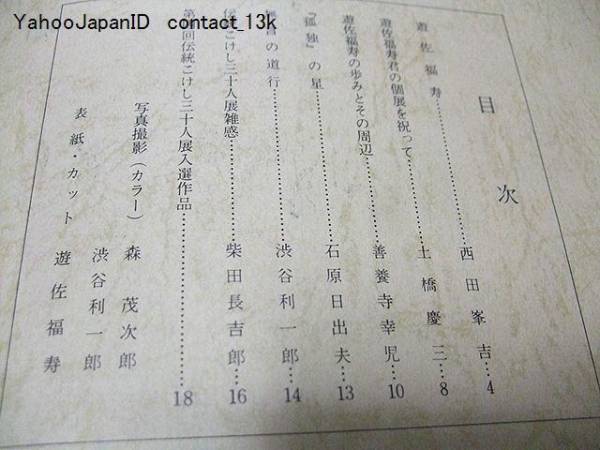 YahooJapanID contact_13k
目次
遊佐福寿……西田峯吉…4
遊佐福寿君の個展を祝って……土橋慶三…8
遊佐福寿の歩みとその周辺……善養寺幸児…10
『孤独』の星……石原日出夫…13
の道行……渋谷利一郎…14
伝 こけし三十人展雑感……柴田長吉郎…16
第 回伝統こけし三十人展入選作品……18
写真撮影(カラー) 森茂次郎
渋谷利一郎
表紙・カット 遊佐福寿